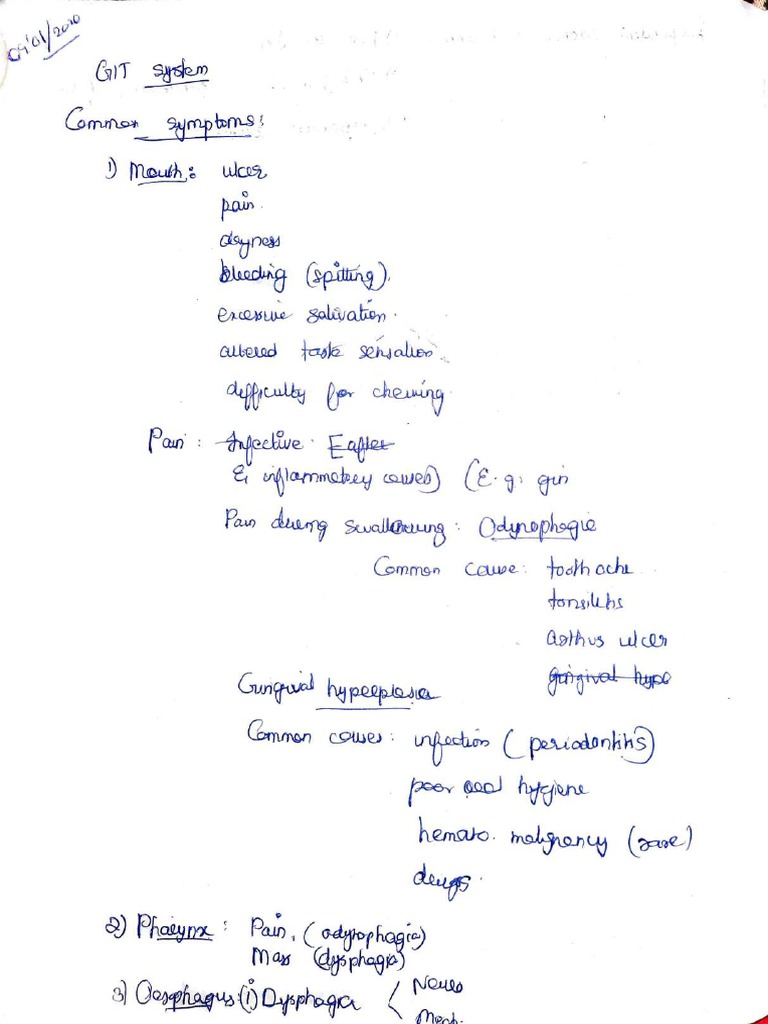 09/01/2020
GIT system
Common symptoms:
1) Mouth: ulcer
pain.
dryness
bleeding (spitting).
excessive salivation.
altered taste sensation
difficulty for chewing.
Pain: Infective. Eafter
& inflammatory causes) (E.g. gin
Pain during swallowing: Odynophagia
Common cause: toothache
tonsilitis
apthus ulcer
gingival hype
Gingival hyperplasia
Common causes: infection (periodontitis)
poor oral hygiene
hemato. malignancy (rare)
drugs.
2) Pharynx: Pain, (odynophagia)
Mass (dysphagia)
3) Oesphagus (i) Dysphagia < Neuro
Mech.